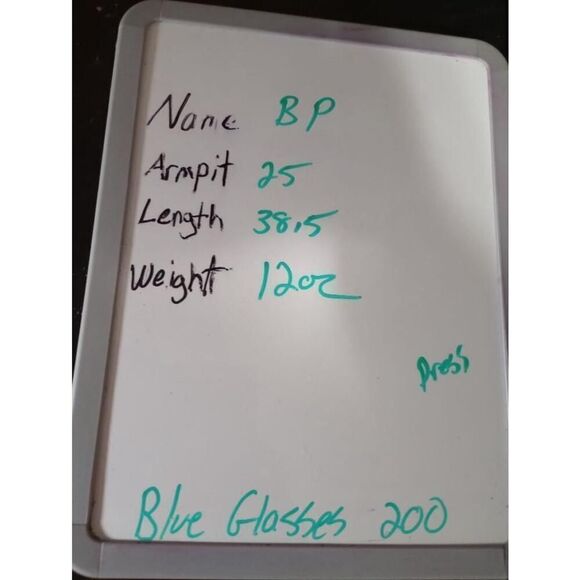 Name BP
Armpit 25
Length 38.5
Weight 12oz
Dress
Blue Glasses 200